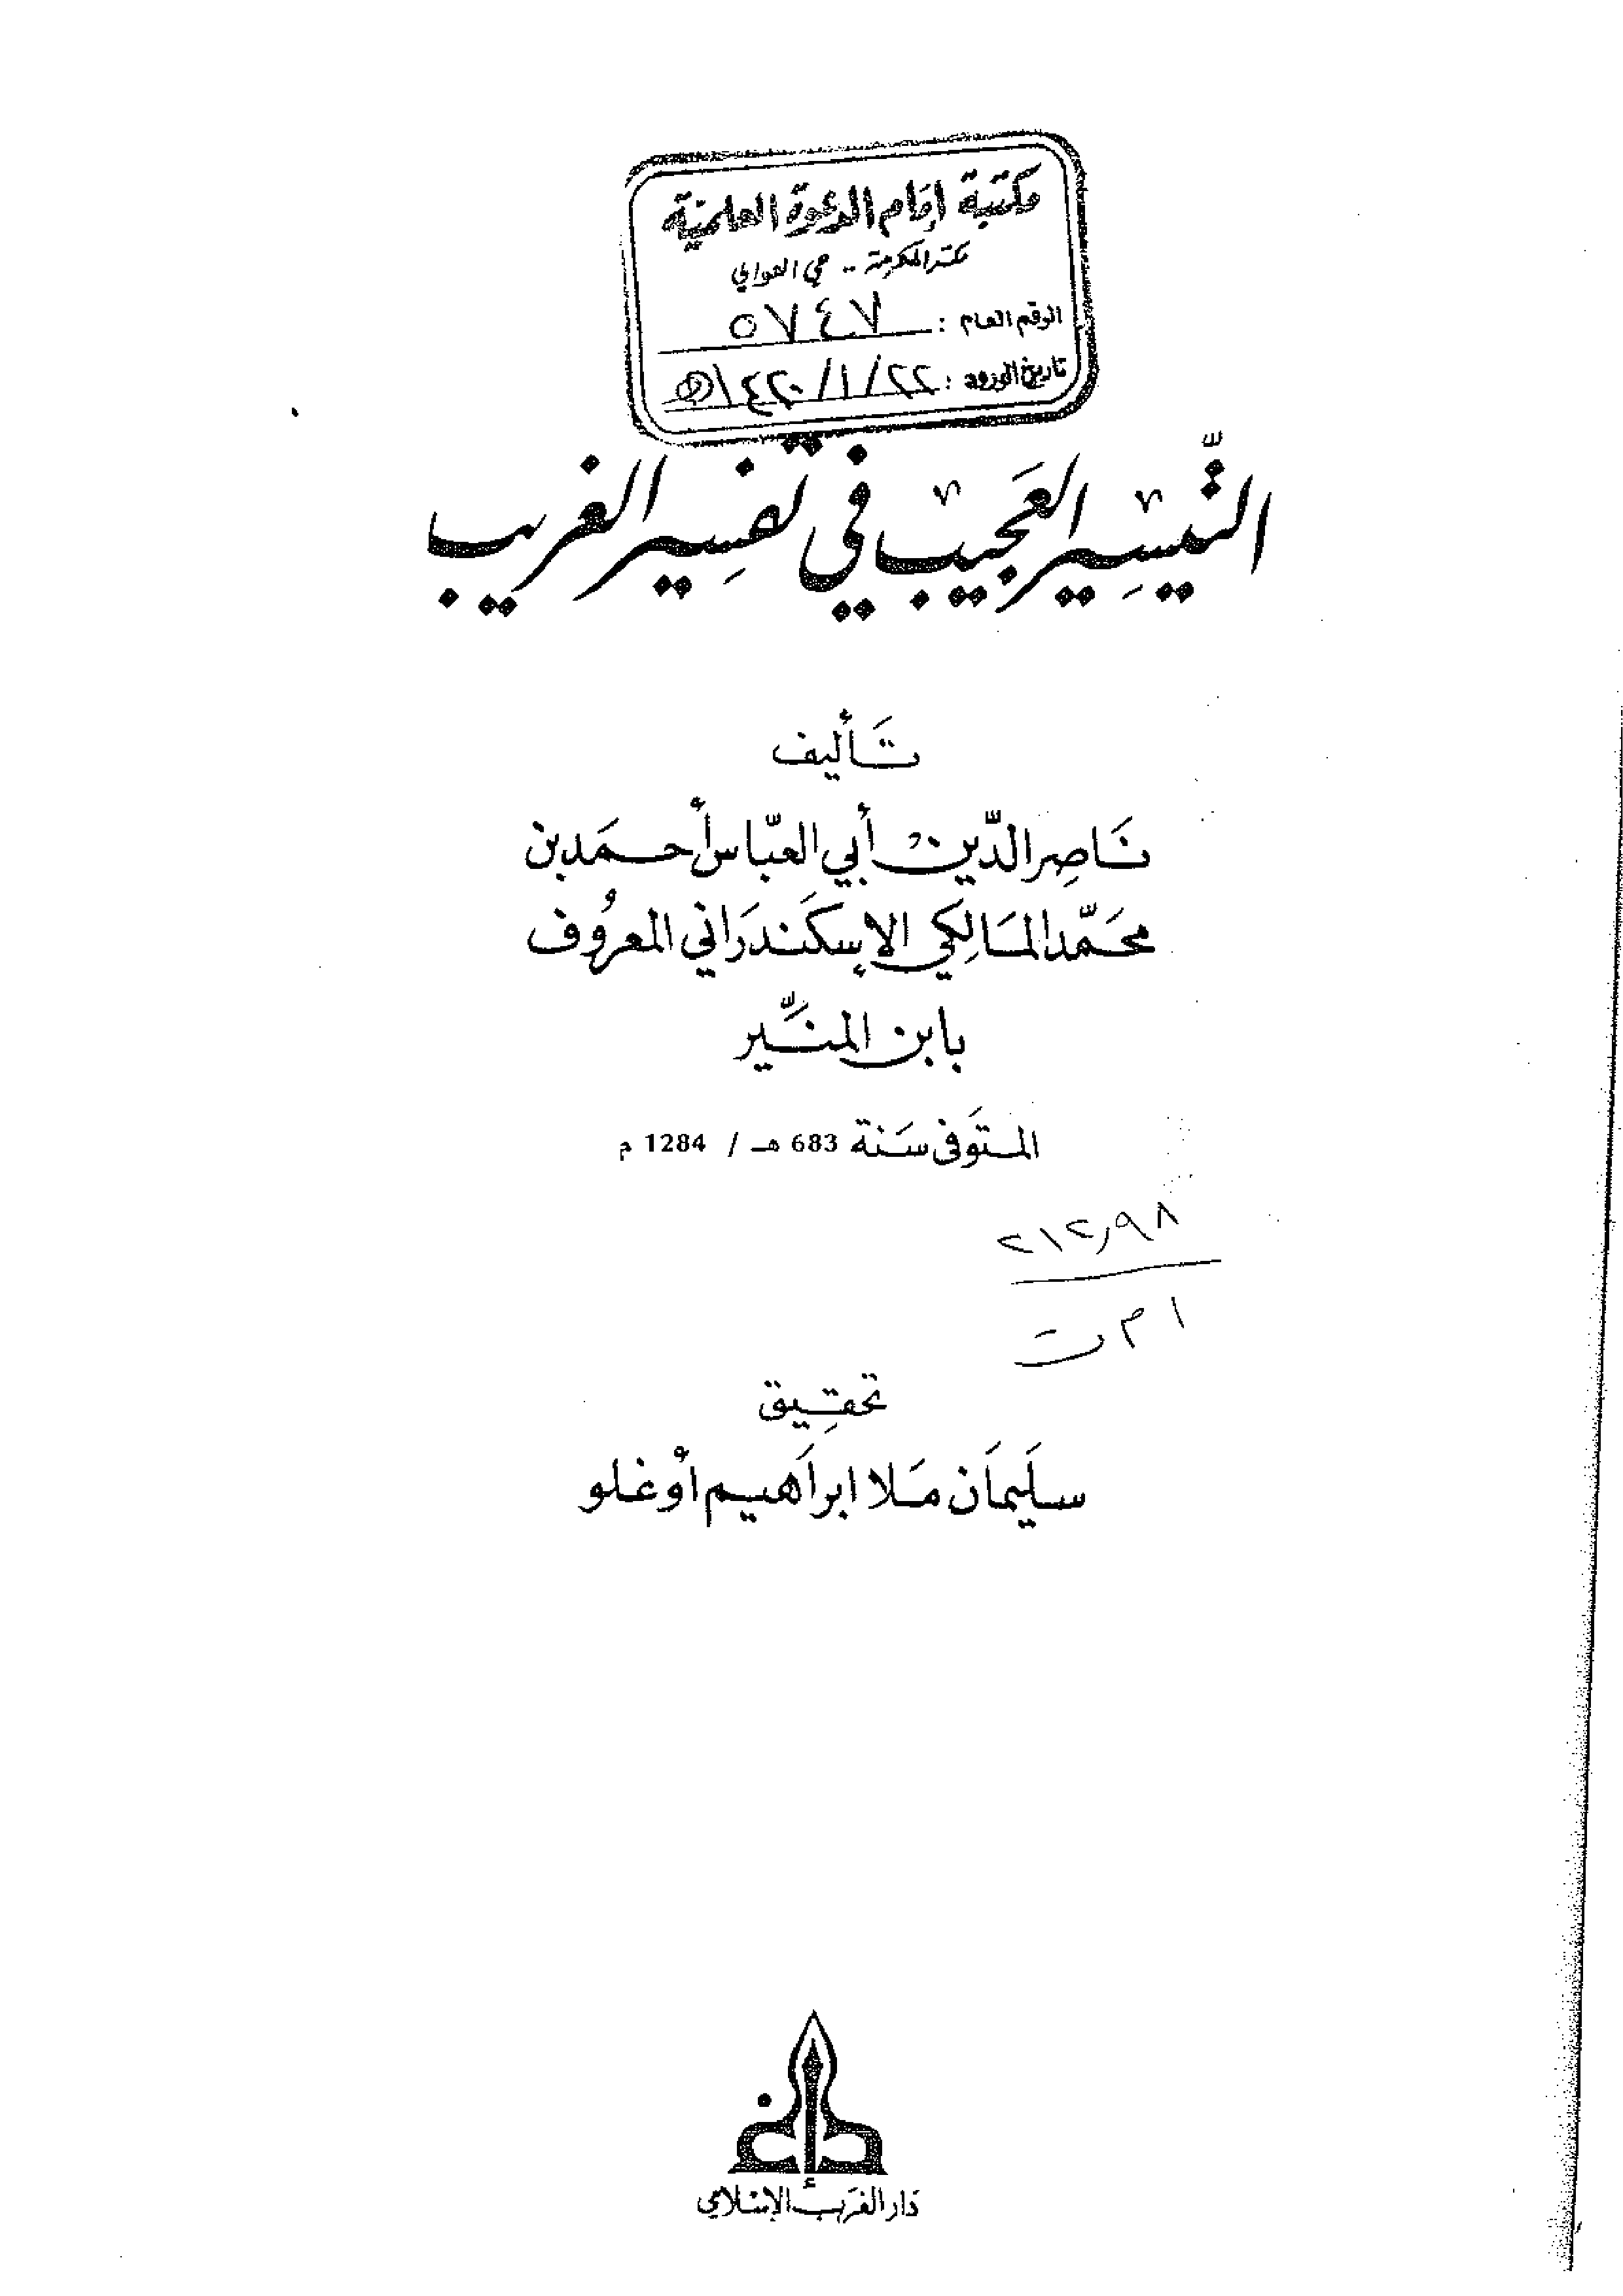 مكتبة إمام الدعوة العلمية
مكة المكرمة .. حي العوالي
الرقم العام : ٥٧٤٧
تاريخ الورود : ٢٢/١/١٤٢٠هـ
التَّيسِير العَجيب في تفسِير الغريب
تَأليف
نَاصِر الدّين أبي العبّاس أحمَد بن
محمَّد المَالِكي الإسكَندَراني المعرُوف
بابن المنَيِّر
المتوَفى سَنة 683 هـ / 1284 م
٢١٢,٩٨
ا م ت
تحقِيق
سلَيمَان مَلا ابراَهيم أوغلو
دَار الغرَب الإسْلامي